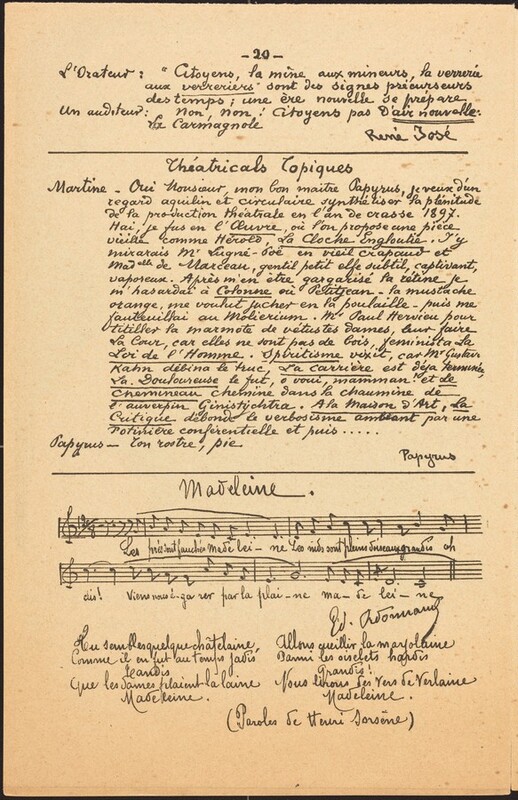 - 20 -
L'Orateur : "Citoyens, la mine aux mineurs, la verrerie
aux verreriers" sont des signes précurseurs
des temps ; une ère nouvelle se prépare
Un auditeur: Non, non ! Citoyens pas D'air nouvelle:
La Carmagnole
René José
Théatricals Topiques
Martine - Oui Monsieur, mon bon maitre Papyrus, je veux d'un
regard aquilin et circulaire synthétiser la plénitude
de la production théatrale en l'an de crasse 1897.
Hai, je fus en l'Œuvre, où l'on propose une pièce
vieille comme Hérold, La Cloche Engloutie. J'y
mirarais Mr Lugné-Poë en vieil crapaud et
Madelle de Marceau, gentil petit elfe subtil, captivant,
vaporeux. Après m'en être gargarisé la rétine je
m'hasardai à Colonne où Petitjean - la moustache
orange, me voulut jucher en la poulaille - puis me
fauteuillai au Molierium. Mr Paul Hervieu pour
titiller la marmote de vétustes dames, leur faire
la Cour, car elles ne sont pas de bois, féminista La
Loi de l'Homme. Spiritisme vixit, car Mr Gustave
Kahn débina le truc, La carrière est déja terminée,
La Douloureuse le fut, ô voui, mamman! et Le
chemineau chemine dans la chaumine de
l'auverpin Ginistychtra. A la Maison d'Art, La
Critique débonde le verbosisme ambéant par une
conférentielle et puis .....
Papyrus - Ton rostre, pie
Papyrus
Madeleine.
Les prés sont fauchés Madelei - ne Les nids sont pleins d'oiseaux grandis oh
dis! Viens nous é-ga rer par la plai - ne ma - de lei - ne
Tu sembles quelque châtelaine, Allons cueillir la marjolaine
Comme il en fut au temps jadis, Parmi les oiselets hardis
Tandis Grandis!
Que les dames filaient la laine Nous lirons des vers de Verlaine
Madeleine. Madeleine.
(Paroles de Henri Sorsène)